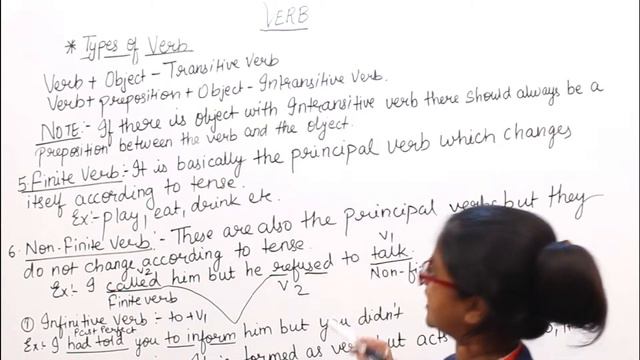 VERB
* Types of Verb
Verb + Object - Transitive verb
Verb + preposition + Object - Intransitive verb.
NOTE:- If there is object with Intransitive verb there should always be a
preposition between the verb and the object.
5. Finite Verb:- It is basically the principal verb which changes
itself according to tense.
Ex:- play, eat, drink etc.
6. Non-Finite Verb:- These are also the principal verbs but they
do not change according to tense.
V2 V1
Ex:- I called him but he refused to talk.
Finite verb V2 Non-
⑦ Infinitive verb:- to + V1
Past Perfect
Ex:- I had told you to inform him but you didn't
is formed as verb but acts